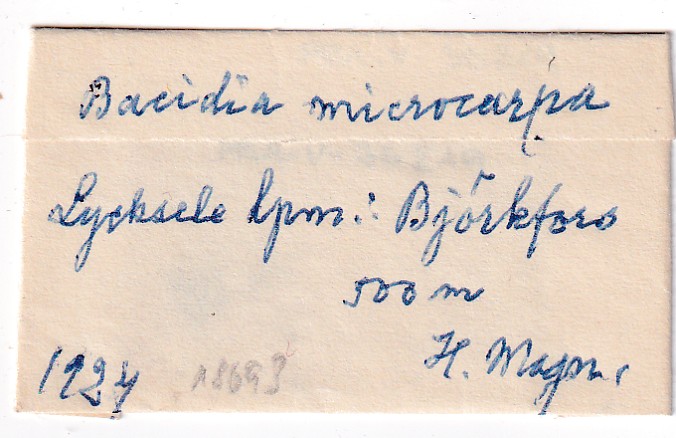 Bacidia microcarpa
Lycksele lpm.: Björkfors
500 m
H. Magn.
1924 18693